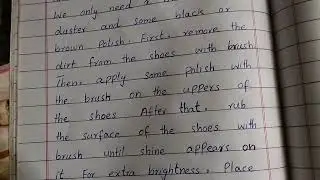 We only need a
duster and some black or
brown polish. First, remove the
dirt from the shoes with brush
Then, apply some polish with
the brush on the uppers of
the shoes After that, rub
the surface of the shoes with
brush until shine appears on
it For extra brightness, Place